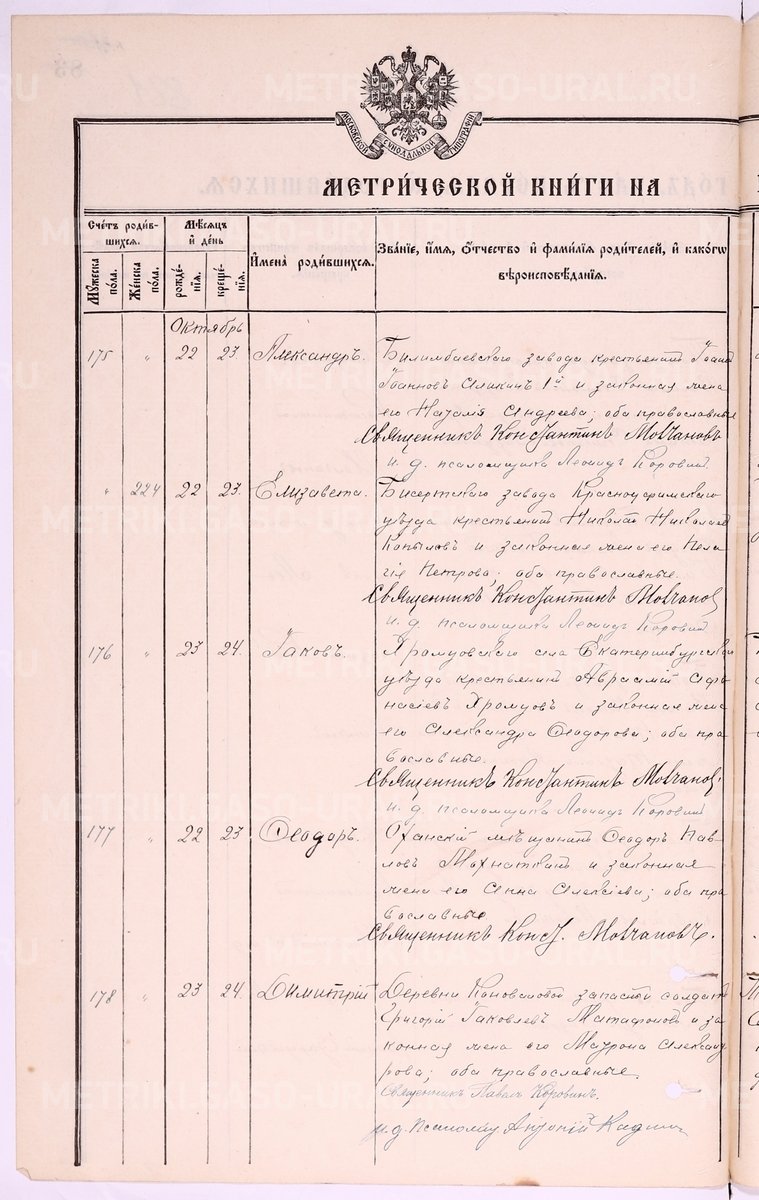 МОСКОВСКОЙ СѴНОДАЛЬНОЙ ТИПОГРАФІИ
МЕТРИ́ЧЕСКОЙ КНИ́ГИ НА
Сче́тъ роди́в-
шихсѧ.
Мѣ́сѧцъ
и҆ де́нь
И҆мена̀ роди́вшихсѧ.
Зва́нїе, и҆́мѧ, ѻ҆́тчество и҆ фами́лїѧ роди́телей, и҆ како́гѡ
вѣроисповѣ́данїѧ.
Мꙋ́жеска
по́ла.
Же́нска
по́ла.
рожде́-
нїѧ.
креще́-
нїѧ.
Октябрь
175 " 22 23. Александръ. Билимбаевскаго завода крестьянинъ Іоаннъ
Іоанновъ Аликинъ 1й и законная жена
его Наталія Андреева; оба православные
Священникъ Константинъ Мовчановъ
и. д. псаломщика Леонидъ Коровинъ
" 224 22 23. Елизавета. Бисертскаго завода Красноуфимскаго
уѣзда крестьянинъ Николай Николаевъ
Копыловъ и законная жена его Пела-
гія Петрова; оба православные.
Священникъ Константинъ Мовчановъ
и. д. псаломщика Леонидъ Коровинъ
176 " 23 24. Іаковъ. Хромцовскаго села Екатеринбургскаго
уѣзда крестьянинъ Авраамій Афа-
насіевъ Хромцовъ и законная жена
его Александра Ѳеодорова; оба пра-
вославные.
Священникъ Константинъ Мовчановъ.
и. д. псаломщика Леонидъ Коровинъ
177 " 22 23 Ѳеодоръ. Оханскій мѣщанинъ Ѳеодоръ Пав-
ловъ Мохнаткинъ и законная
жена его Анна Алексіева; оба пра-
вославные
Священникъ Конст. Мовчановъ.
178 " 23 24. Димитрій Деревни Коноваловой запасный солдатъ
Григорій Іаковлевъ Матафоновъ и за-
конная жена его Маврона Александ-
рова; оба православные.
Священникъ Павелъ Коровинъ.
и. д. псаломщ. Антоній